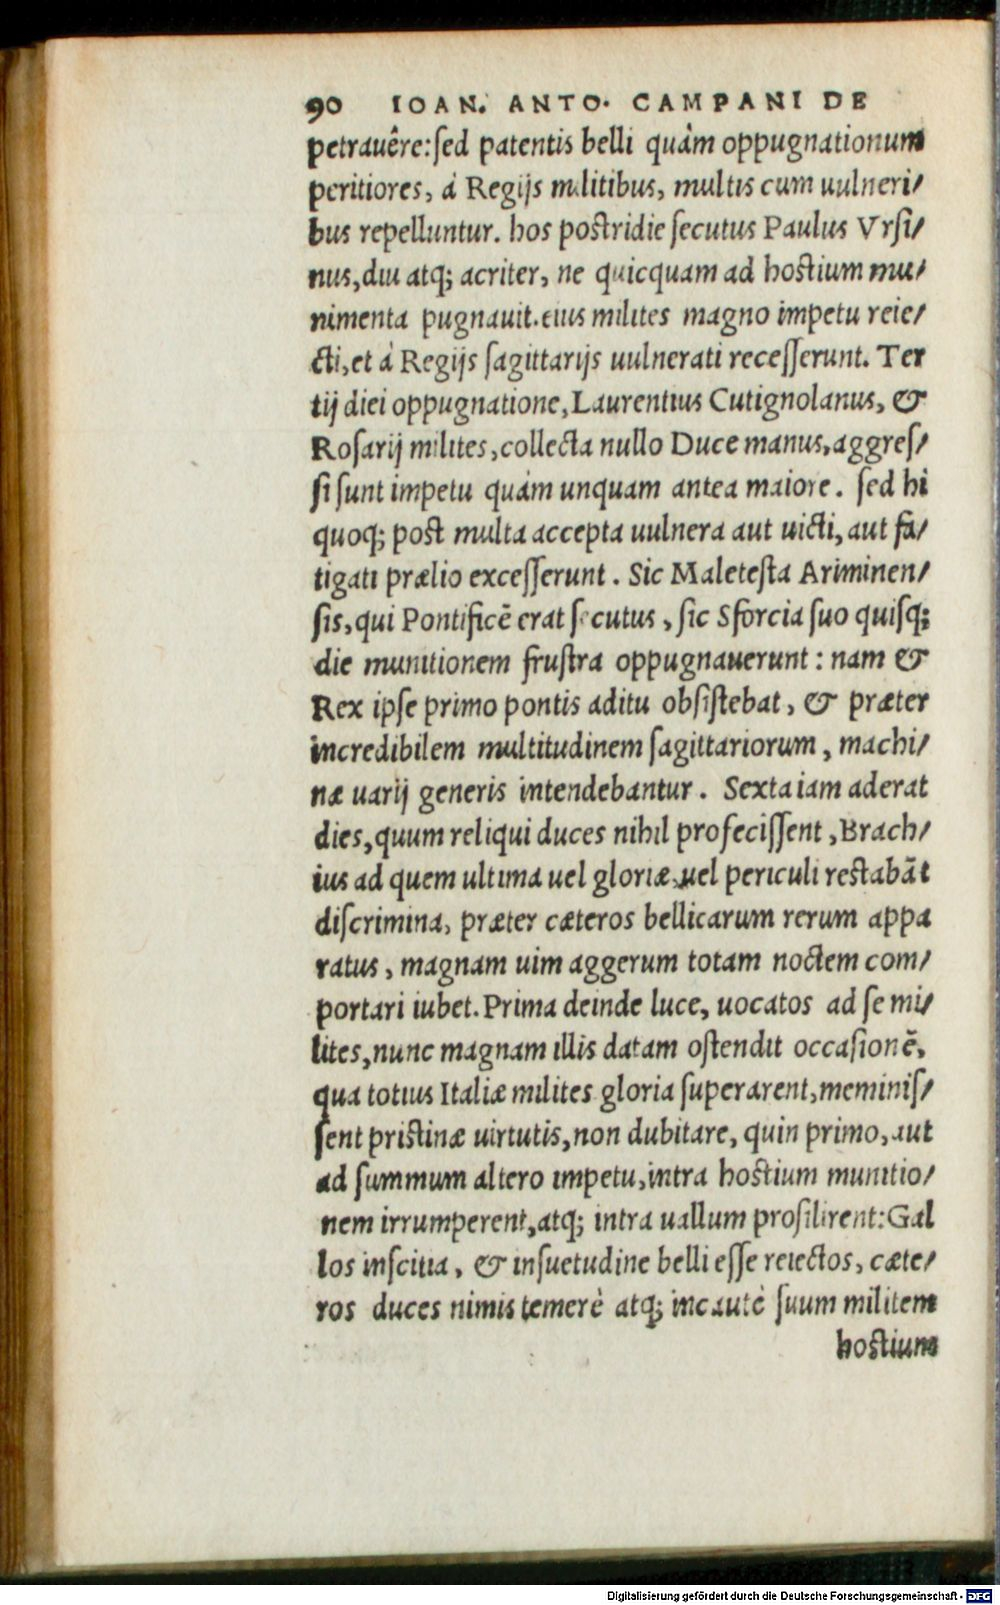 90 IOAN. ANTO. CAMPANI DE
petrauêre: sed patentis belli quàm oppugnationum
peritiores, á Regijs militibus, multis cum uulneri/
bus repelluntur. hos postridie secutus Paulus Vrsi/
nus, diu atq; acriter, ne quicquam ad hostium mu/
nimenta pugnauit. eius milites magno impetu reie/
cti, et á Regijs sagittarijs uulnerati recesserunt. Ter
tij diei oppugnatione, Laurentius Cutignolanus, &
Rosarij milites, collecta nullo Duce manus, aggres/
si sunt impetu quàm unquam antea maiore. sed hi
quoq; post multa accepta uulnera aut uicti, aut fa/
tigati prælio excesserunt. Sic Maletesta Ariminen/
sis, qui Pontificē erat secutus, sic Sforcia suo quisq;
die munitionem frustra oppugnauerunt: nam &
Rex ipse primo pontis aditu obsistebat, & præter
incredibilem multitudinem sagittariorum, machi/
næ uarij generis intendebantur. Sexta iam aderat
dies, quum reliqui duces nihil profecissent, Brach/
ius ad quem ultima uel gloriæ, uel periculi restabāt
discrimina, præter cæteros bellicarum rerum appa
ratus, magnam uim aggerum totam noctem com/
portari iubet. Prima deinde luce, uocatos ad se mi/
lites, nunc magnam illis datam ostendit occasionē,
qua totius Italiæ milites gloria superarent, meminis/
sent pristinæ uirtutis, non dubitare, quin primo, aut
ad summum altero impetu, intra hostium munitio/
nem irrumperent, atq; intra uallum prosilirent: Gal
los inscitia, & insuetudine belli esse reiectos, cæte/
ros duces nimis temerè atq; incautè suum militem
hostium
Digitalisierung gefördert durch die Deutsche Forschungsgemeinschaft - DFG